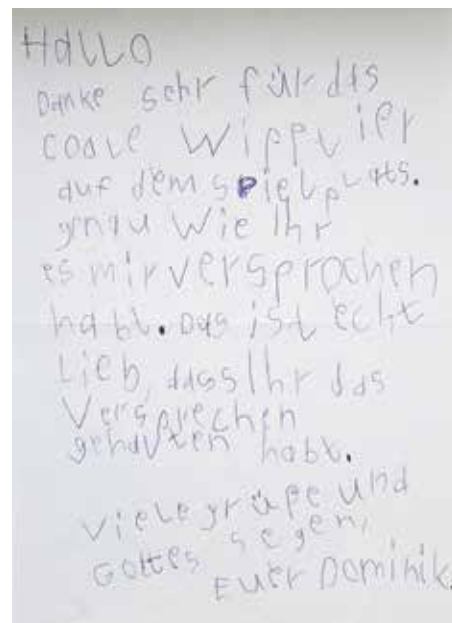 Hallo
Danke sehr für das
coole Wippvier
auf dem spielplats.
gnau Wie Ihr
es mir versprochen
habt. Das ist echt
Lieb, dass Ihr das
Versprechen
gehalten habt.
Viele grüße und
Gottes segen,
Euer Dominik.